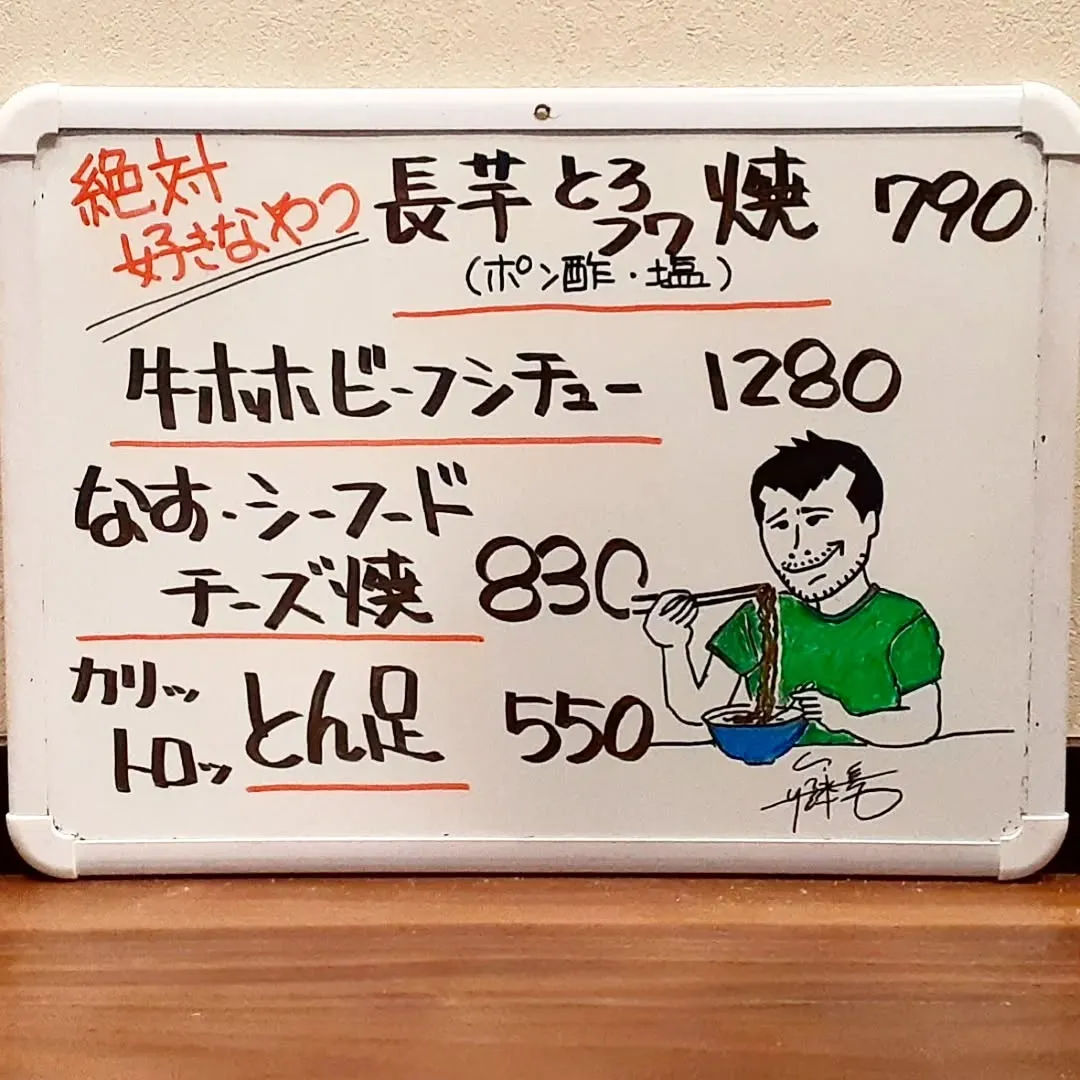 絶対
好きなやつ
長芋とろフワ焼 790
(ポン酢・塩)
牛ホホビーフシチュー 1280
なす・シーフード
チーズ焼 830
カリッ
トロッ とん足 550